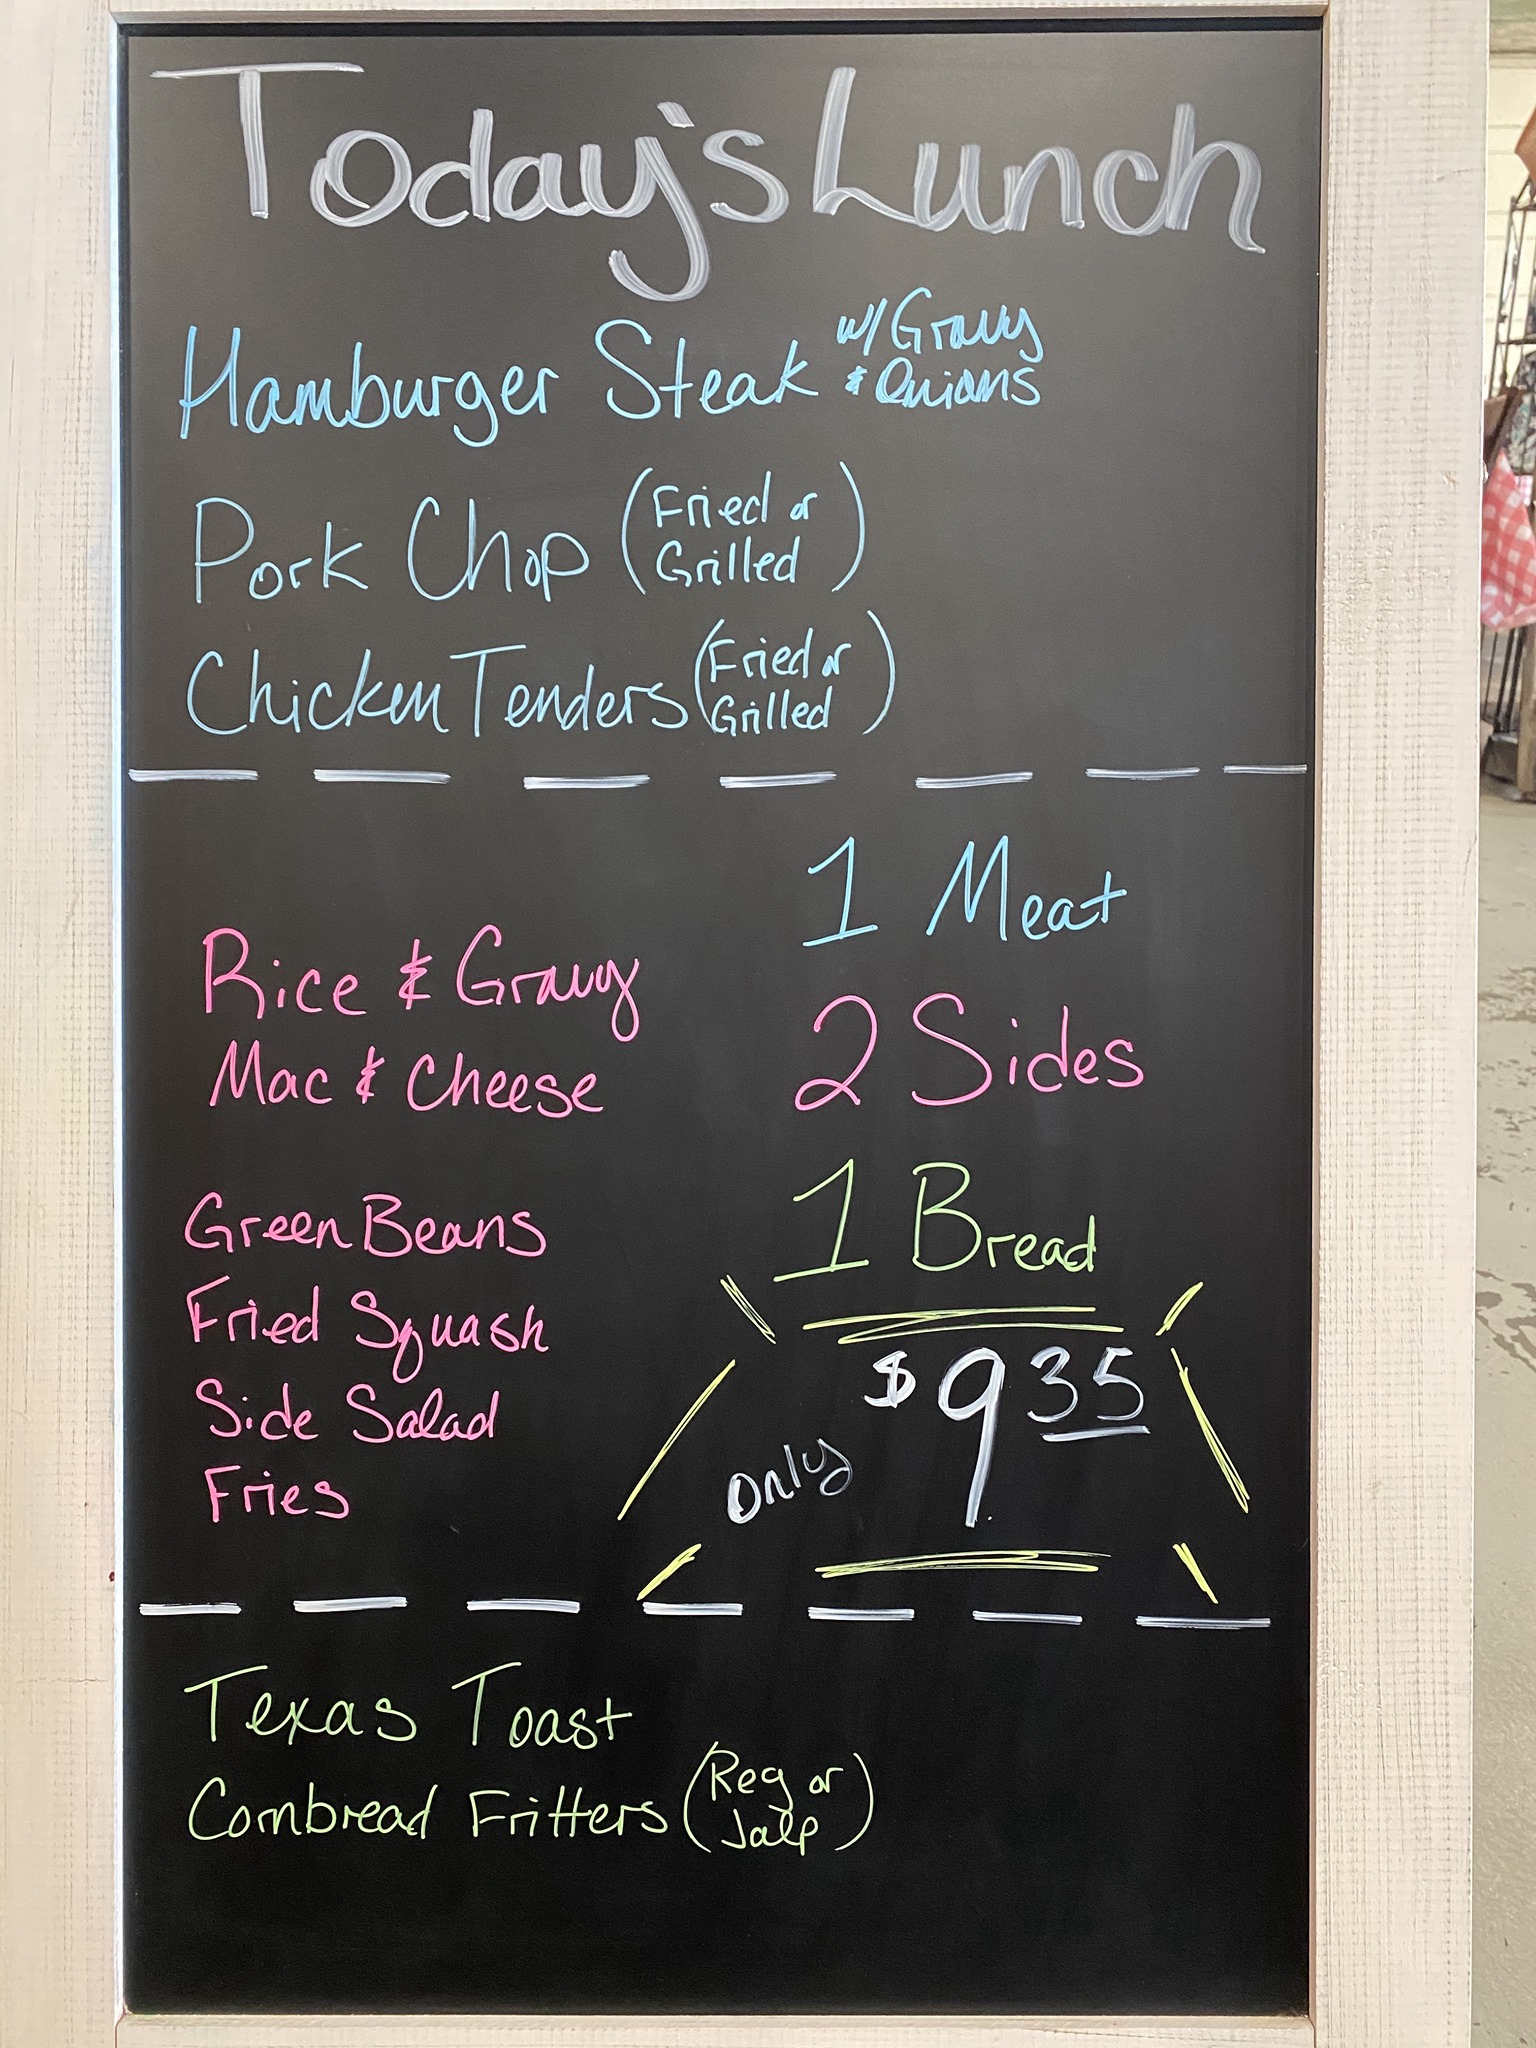 Today's Lunch
Hamburger Steak w/ Gravy
& Onions
Pork Chop (Fried or
Grilled)
Chicken Tenders (Fried or
Grilled)
1 Meat
Rice & Gravy
2 Sides
Mac & Cheese
1 Bread
Green Beans
Fried Squash
Side Salad
Fries
Only $9.35
Texas Toast
Cornbread Fritters (Reg or
Jalp)